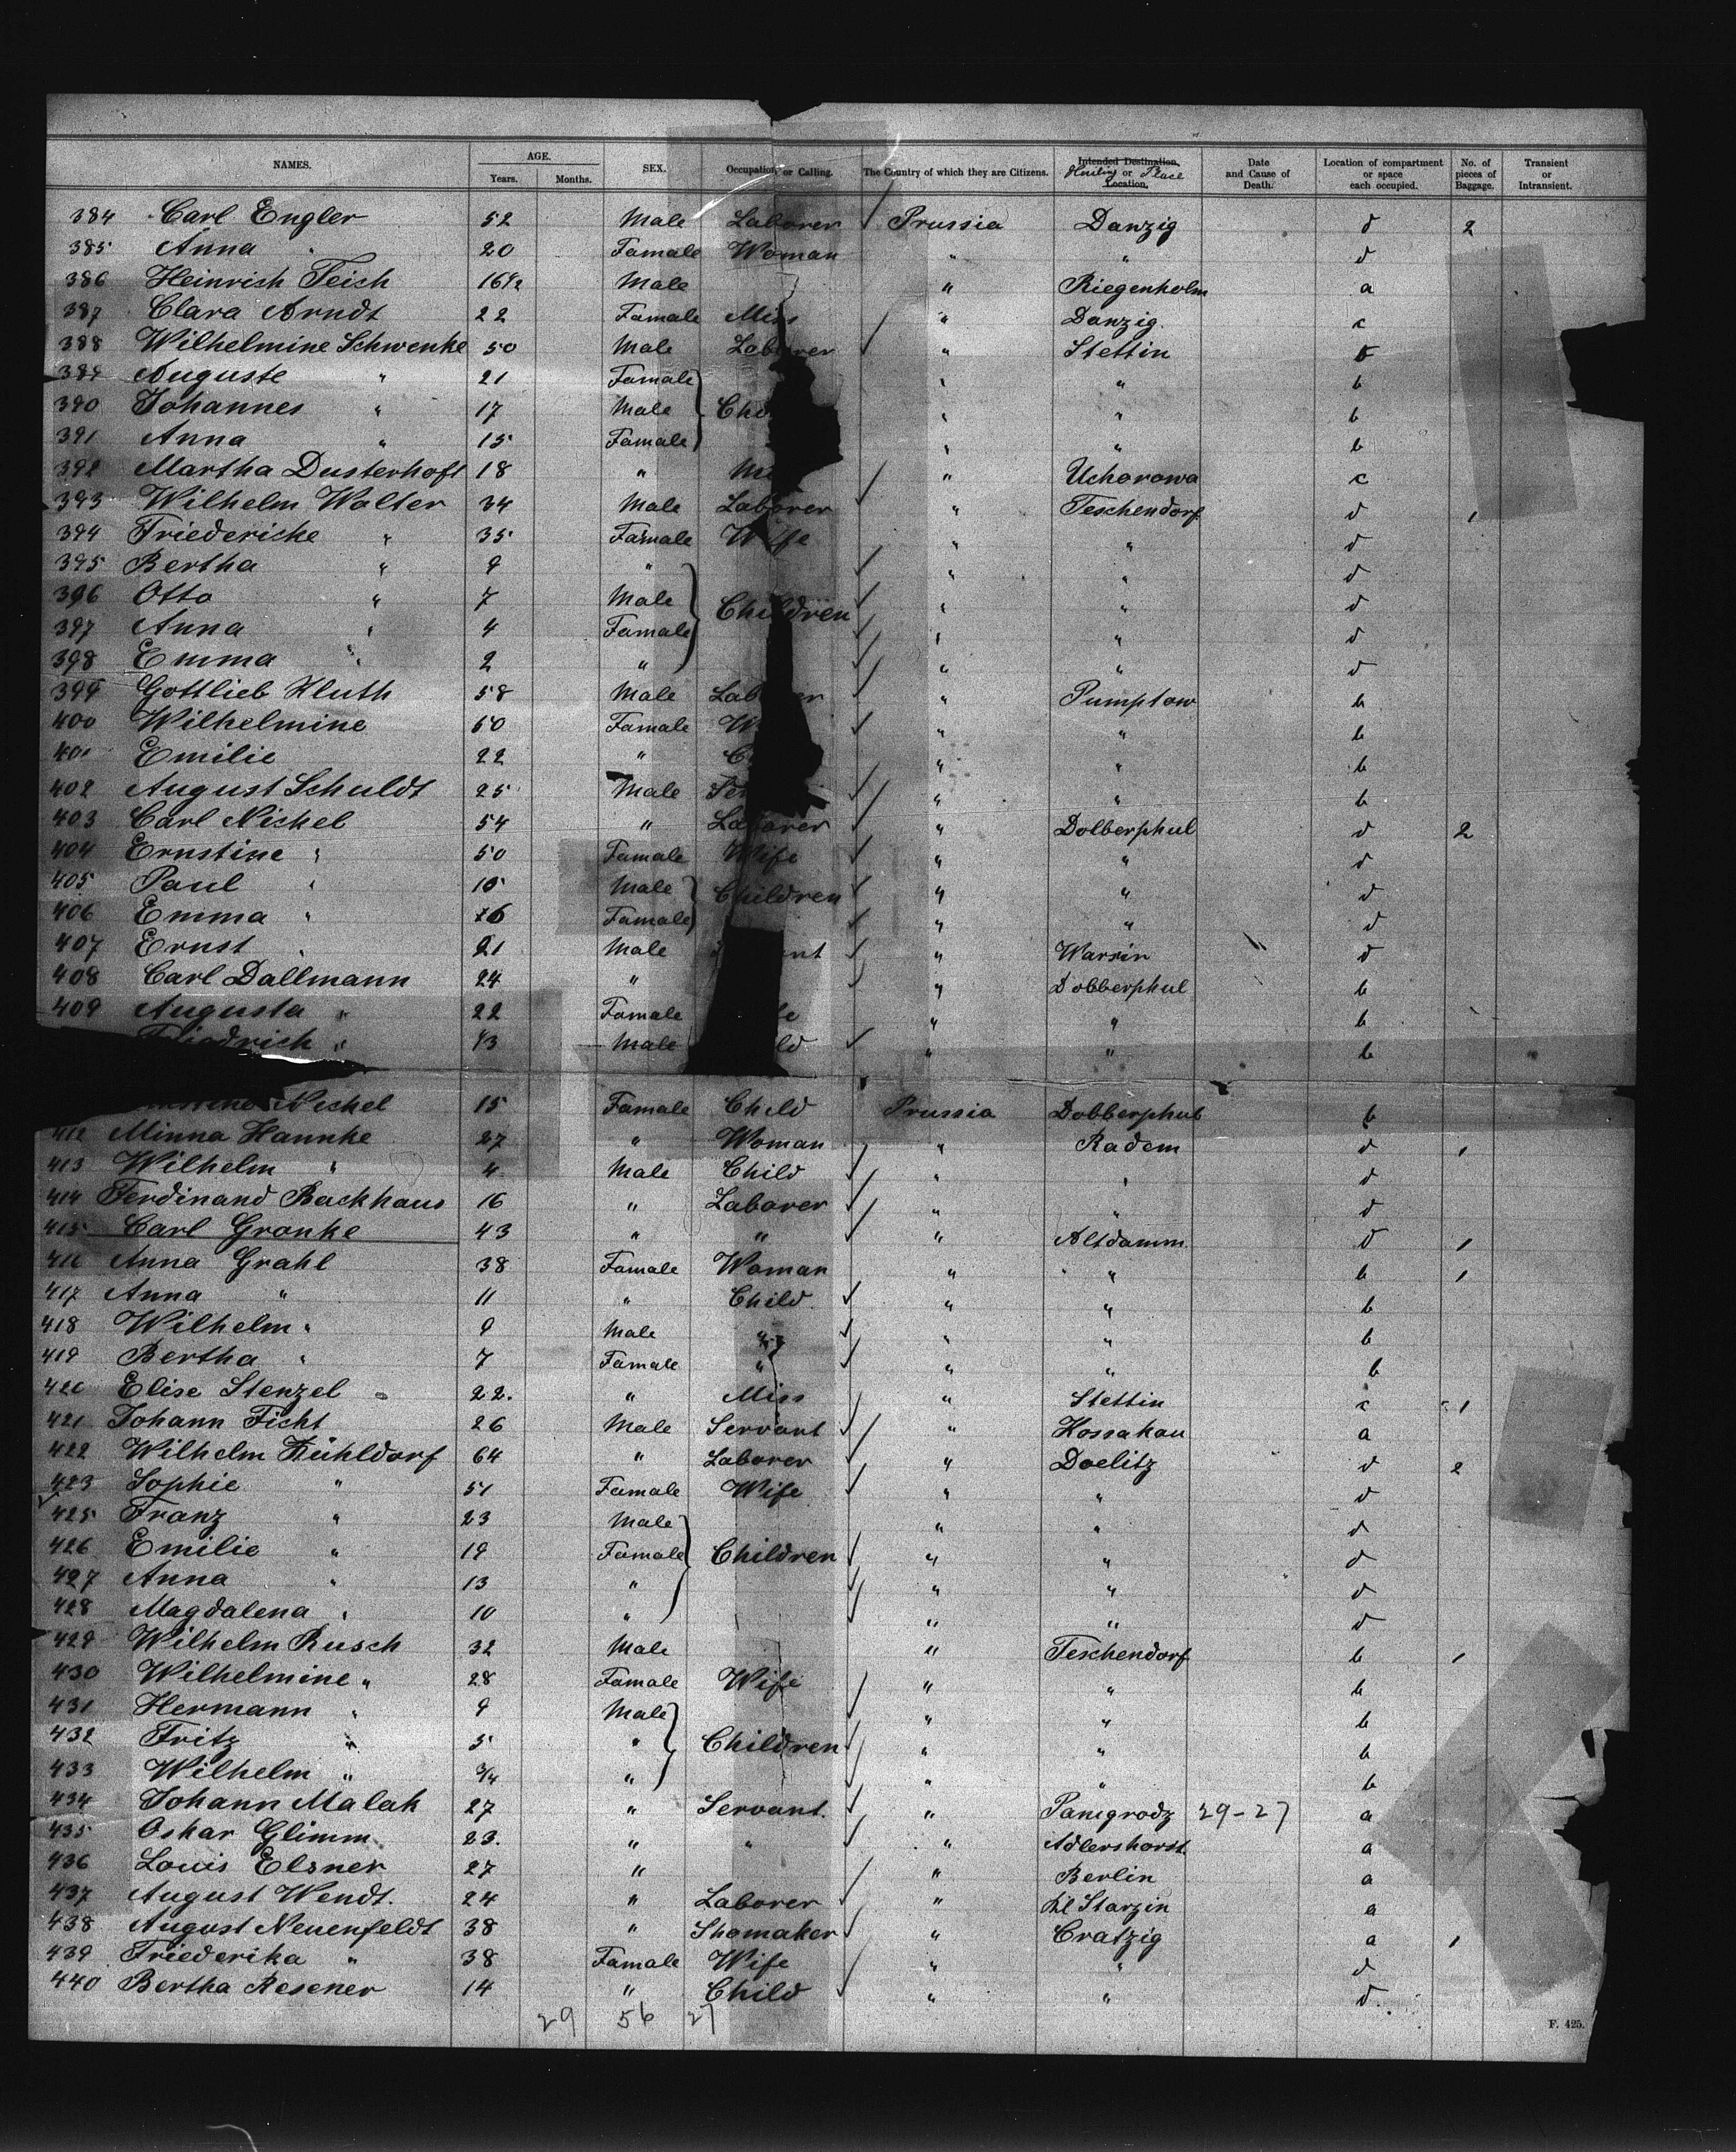 NAMES. AGE. Years. Months. SEX. Occupation or Calling. The Country of which they are Citizens. Intended Destination, or Location. Place Date and Cause of Death. Location of compartment or space each occupied. No. of pieces of Baggage. Transient or Intransient.
384 Carl Engler 52 Male Laborer ✓ Prussia Danzig d 2
385 Anna " 20 Famale Woman " " d
386 Heinrich Teich 16 1/2 Male " Riegenholm a
387 Clara Arndt 22 Famale Miss " Danzig. c
388 Wilhelmine Schwenke 50 Male Laborer ✓ " Stettin b
389 Auguste " 21 Famale " " b
390 Johannes " 17 Male " " b
391 Anna " 15 Famale " " b
392 Martha Dusterhoft 18 " " Uchorowa c
393 Wilhelm Walter 34 Male Laborer ✓ " Teschendorf d 1
394 Friedericke " 35 Famale Wife " " d
395 Bertha " 9 " ✓ " " d
396 Otto " 7 Male Children ✓ " " d
397 Anna " 4 Famale ✓ " " d
398 Emma " 2 " ✓ " " d
399 Gottlieb Kluth 58 Male Laborer ✓ " Pumptow b
400 Wilhelmine 50 Famale ✓ " " b
401 Emilie 22 " " " b
402 August Schuldt 25 Male ✓ " " b
403 Carl Nickel 54 " Laborer ✓ " Dolberphul d 2
404 Ernstine " 50 Famale Wife ✓ " " d
405 Paul " 15 Male Children ✓ " " d
406 Emma " 6 Famale ✓ " " d
407 Ernst " 21 Male ✓ " Warsin d
408 Carl Dallmann 24 " ✓ " Dobberphul b
409 Augusta " 22 Famale " " b
Friedrich " 1/3 Male ✓ " " b
Nickel 15 Famale Child Prussia Dobberphul b
412 Minna Hannke 27 " Woman " Radem d 1
413 Wilhelm " 4 Male Child ✓ " " d
414 Ferdinand Backhaus 16 " Laborer ✓ " " d
415 Carl Gronke 43 " " ✓ " Altdamm d 1
416 Anna Grahl 38 Famale Woman " " b 1
417 Anna " 11 " Child ✓ " " b
418 Wilhelm " 9 Male " ✓ " " b
419 Bertha " 7 Famale " ✓ " " b
420 Elise Stenzel 22. " Miss " Stettin c 1
421 Johann Ficht 26 Male Servant ✓ " Kossakau a
422 Wilhelm Kühldorf 64 " Laborer ✓ " Doelitz d 2
423 Sophie " 51 Famale Wife ✓ " " d
425 Franz " 23 Male " " d
426 Emilie " 19 Famale Children ✓ " " d
427 Anna " 13 " ✓ " " d
428 Magdalena " 10 " ✓ " " d
429 Wilhelm Rusch 32 Male " Teschendorf b 1
430 Wilhelmine " 28 Famale Wife ✓ " " b
431 Hermann " 9 Male ✓ " " b
432 Fritz " 5 " Children ✓ " " b
433 Wilhelm " 3/4 " ✓ " " b
434 Johann Malak 27 " Servant. ✓ " Panigrodz 29-27 a
435 Oskar Glimm 23. " " ✓ " Adlershorst a
436 Louis Elsner 27 " " Berlin a
437 August Wendt. 24 " Laborer ✓ " Kl Starzin a
438 August Neuenfeldt 38 " Shomaker ✓ " Cratzig a 1
439 Friederika " 38 Famale Wife ✓ " " d
440 Bertha Resener 14 " Child ✓ " " d
29 56 27
F. 425.